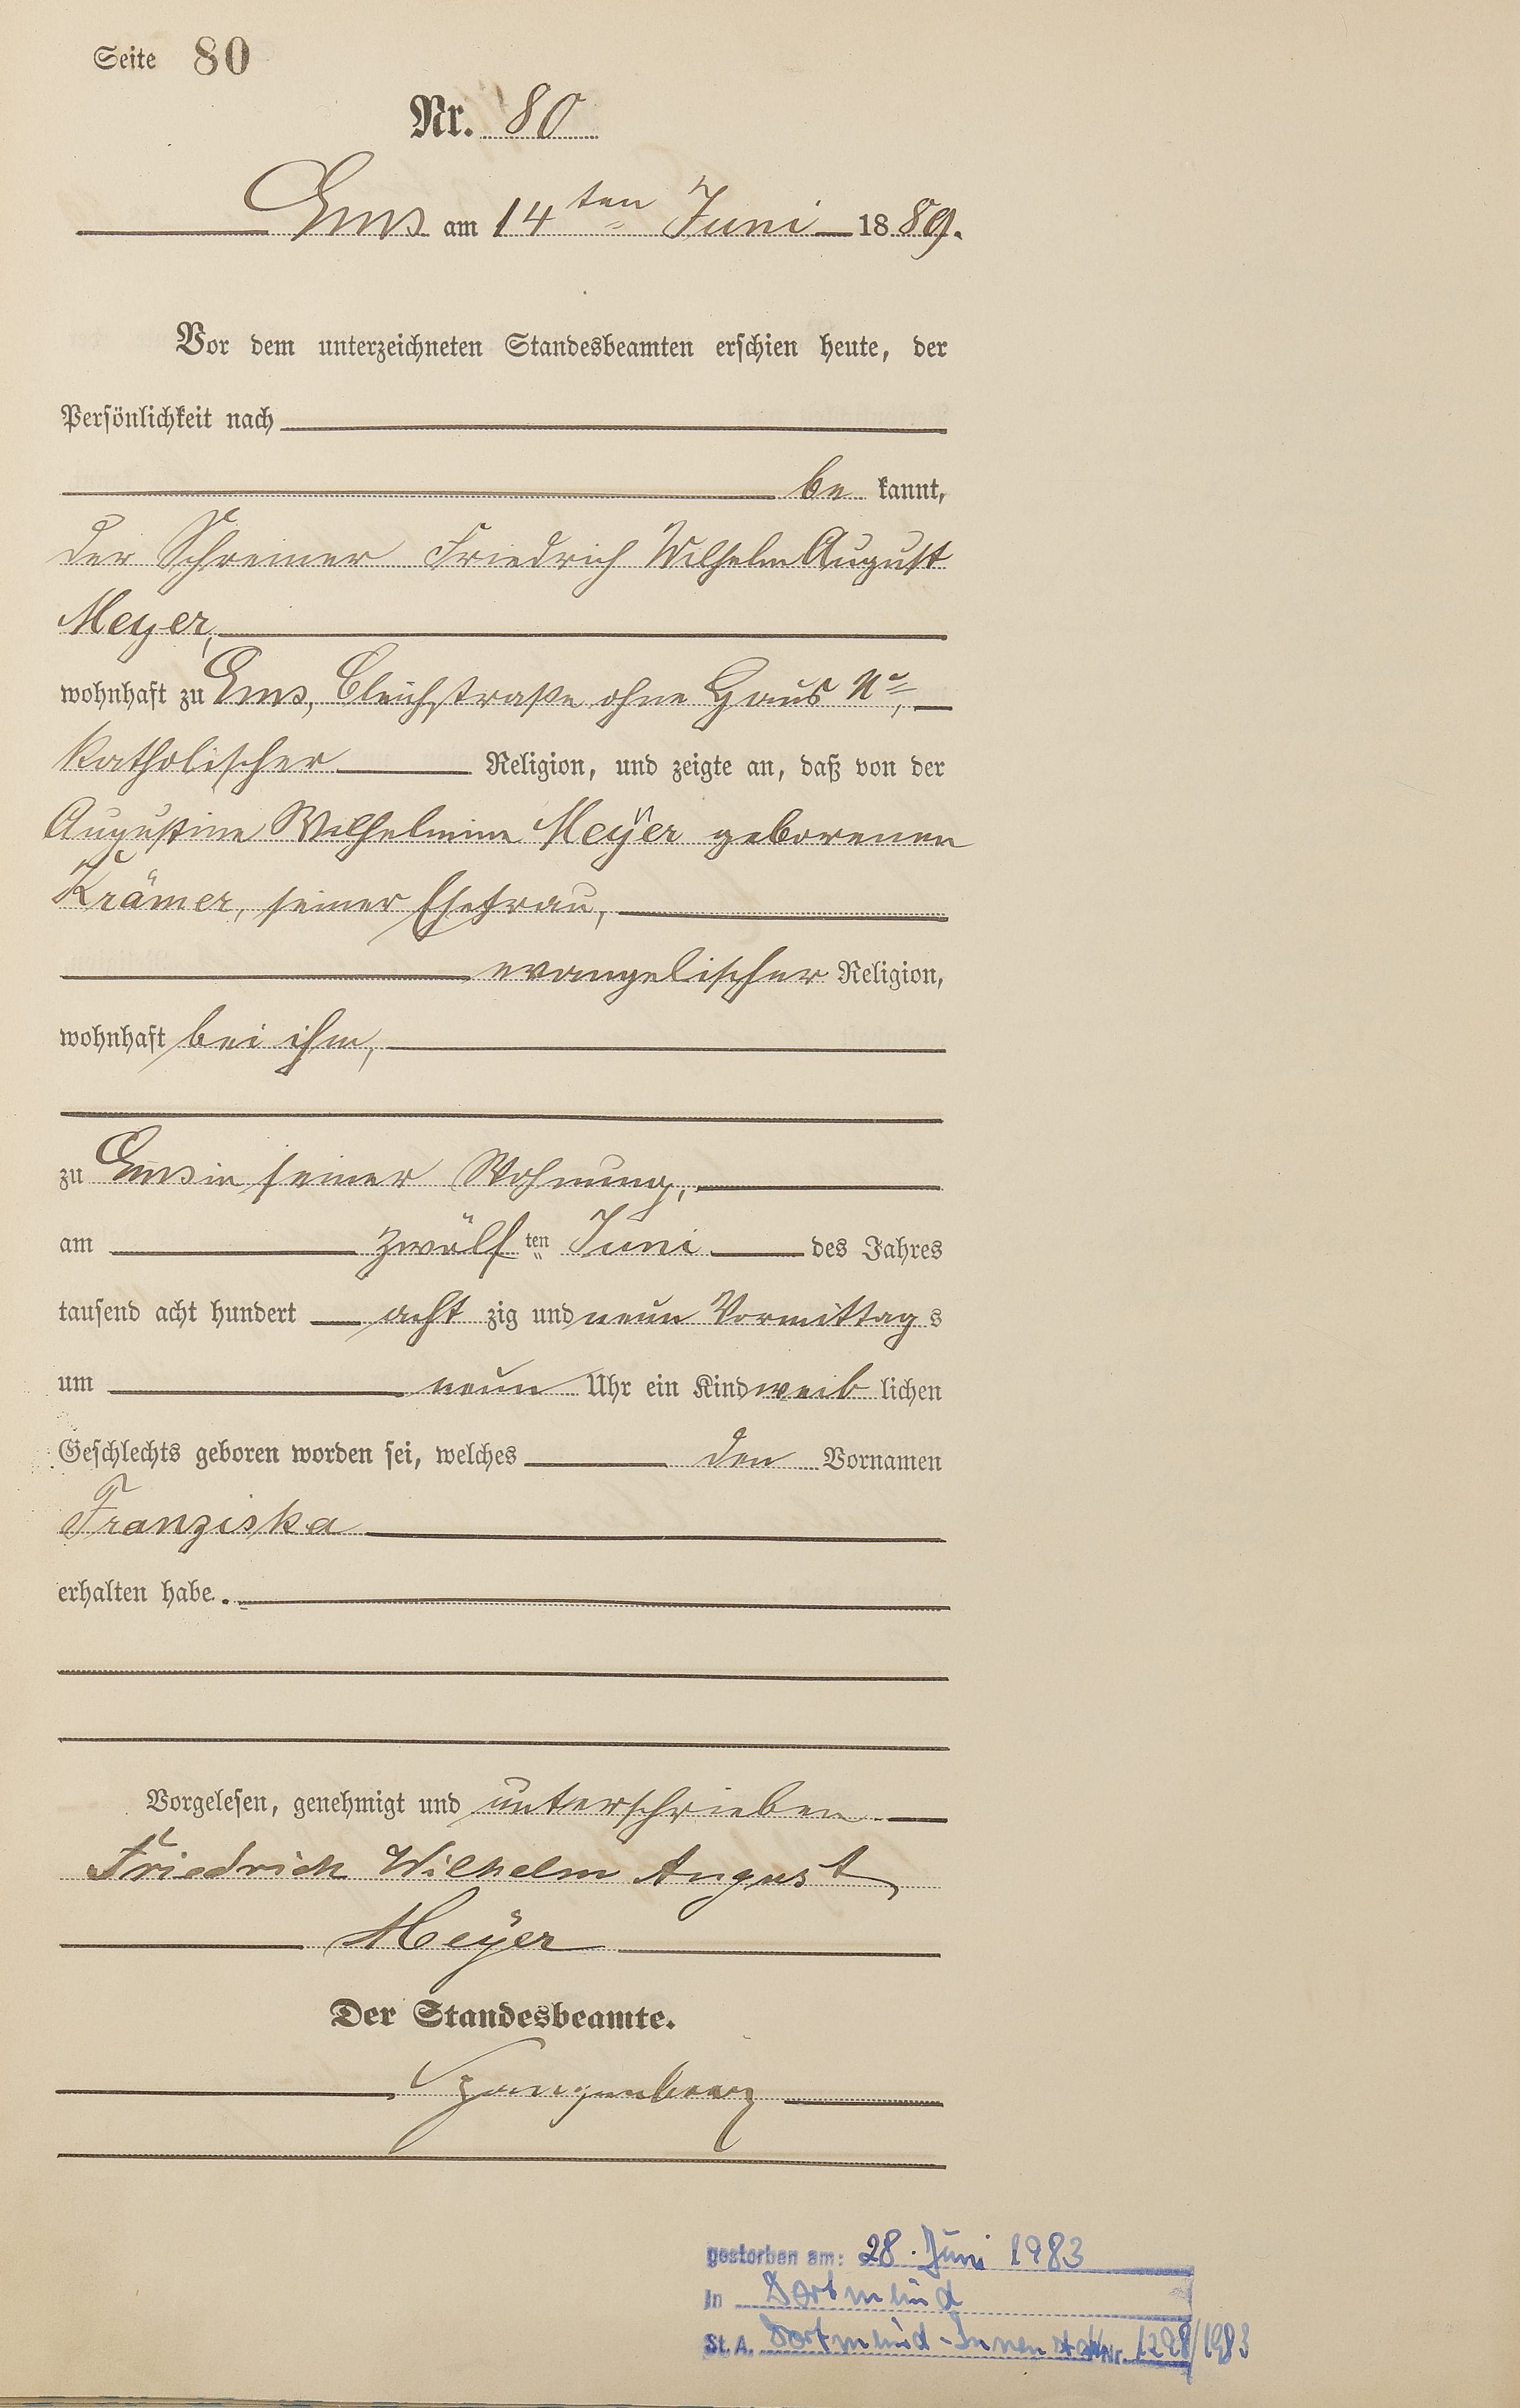 Seite 80
Nr. 80
Ems am 14ten Juni 1889.
Vor dem unterzeichneten Standesbeamten erschien heute, der
Persönlichkeit nach
be kannt,
der Schreiner Friedrich Wilhelm August
Meyer,
wohnhaft zu Ems, Bleichstraße ohne Haus No,
katholischer Religion, und zeigte an, daß von der
Augustine Wilhelmine Meyer geborenen
Krämer, seiner Ehefrau,
evangelischer Religion,
wohnhaft bei ihm,
zu Ems in seiner Wohnung,
am zwölf ten Juni des Jahres
tausend acht hundert acht zig und neun Vormittag s
um neun Uhr ein Kind weib lichen
Geschlechts geboren worden sei, welches den Vornamen
Franziska
erhalten habe.
Vorgelesen, genehmigt und unterschrieben
Friedrich Wilhelm August
Meÿer
Der Standesbeamte.
Spangenberg
gestorben am: 28. Juni 1983
in Dortmund
St. A. Dortmund-Innenstadt Nr. 1298/1983